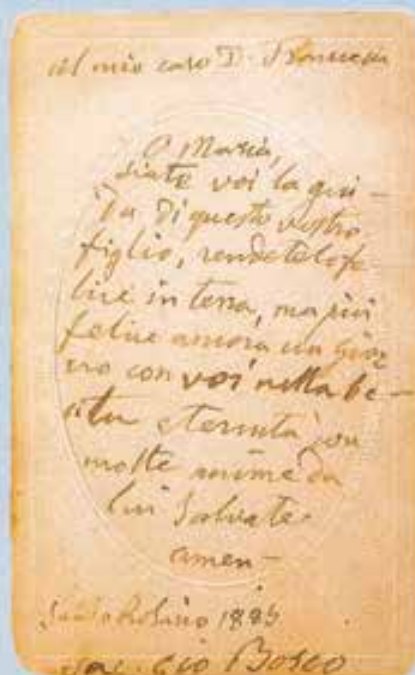 Al mio caro D.
O Maria,
siate voi la gui-
da di questo vostro
figlio, rendetelo fe
lice in terra, ma più
felice ancora un gior
no con voi nella be-
ata eternità con
molte anime da
lui salvate.
amen-
Rosario 1885
Sac. Gio Bosco